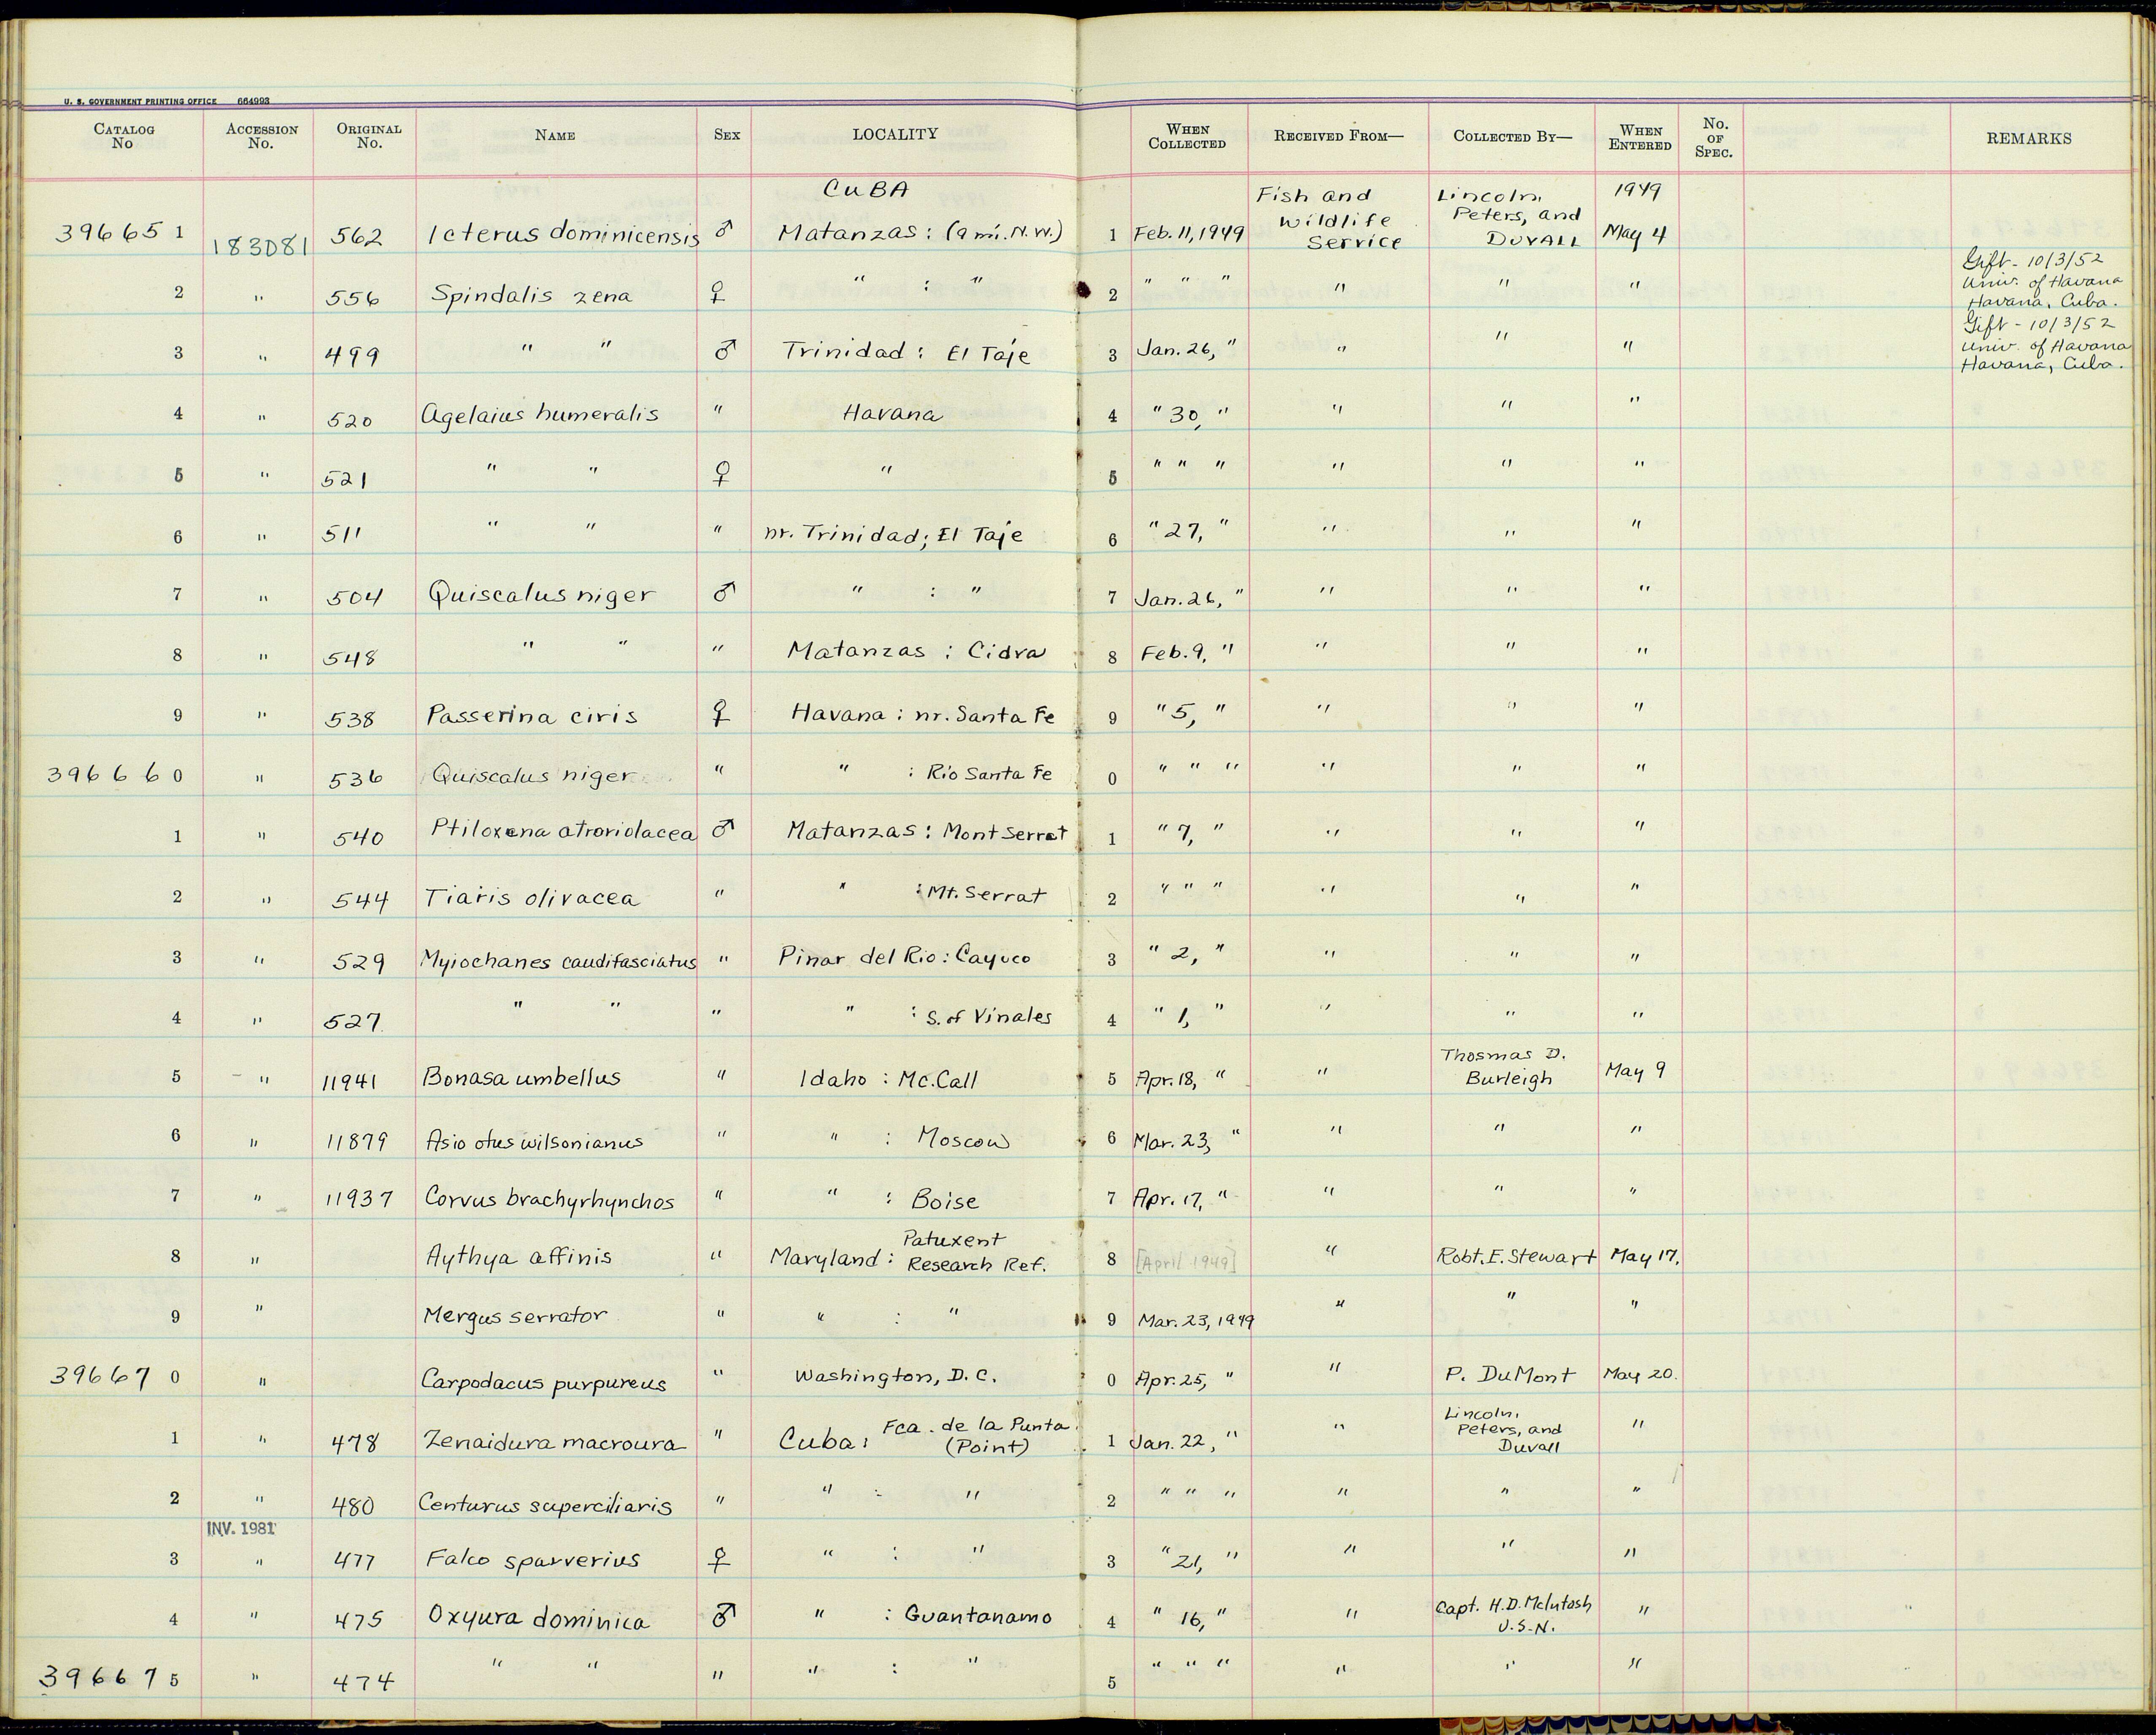 U. S. GOVERNMENT PRINTING OFFICE 664993
CATALOG No ACCESSION No. ORIGINAL No. NAME SEX LOCALITY WHEN COLLECTED RECEIVED FROM— COLLECTED BY— WHEN ENTERED No. OF SPEC. REMARKS
CUBA
396651 183081 562 Icterus dominicensis ♂ Matanzas: (9 mi. N.W.) 1 Feb. 11, 1949 Fish and Wildlife Service Lincoln, Peters, and DUVALL 1949 May 4
2 " 556 Spindalis zena ♀ " : " 2 " " " " " " Gift - 10/3/52 Univ. of Havana Havana, Cuba.
3 " 499 " " ♂ Trinidad: El Taje 3 Jan. 26, " " " " Gift - 10/3/52 Univ. of Havana Havana, Cuba.
4 " 520 Agelaius humeralis " Havana 4 " 30, " " " "
5 " 521 " " ♀ " 5 " " " " " "
6 " 511 " " " nr. Trinidad; El Taje 6 " 27, " " " "
7 " 504 Quiscalus niger ♂ " : " 7 Jan. 26, " " " "
8 " 548 " " " Matanzas : Cidra 8 Feb. 9, " " " "
9 " 538 Passerina ciris ♀ Havana : nr. Santa Fe 9 " 5, " " " "
396660 " 536 Quiscalus niger " " : Rio Santa Fe 0 " " " " " "
1 " 540 Ptiloxena atroviolacea ♂ Matanzas : Mont Serrat 1 " 7, " " " "
2 " 544 Tiaris olivacea " " : Mt. Serrat 2 " " " " " "
3 " 529 Myiochanes caudifasciatus " Pinar del Rio : Cayuco 3 " 2, " " " "
4 " 527 " " " " : S. of Vinales 4 " 1, " " " "
5 " 11941 Bonasa umbellus " Idaho : Mc.Call 5 Apr. 18, " " Thosmas D. Burleigh May 9
6 " 11879 Asio otus wilsonianus " " : Moscow 6 Mar. 23, " " " "
7 " 11937 Corvus brachyrhynchos " " : Boise 7 Apr. 17, " " " "
8 " Aythya affinis " Maryland : Patuxent Research Ref. 8 [April 1949] " Robt. E. Stewart May 17.
9 " Mergus serrator " " : " 9 Mar. 23, 1949 " " "
396670 " Carpodacus purpureus " Washington, D. C. 0 Apr. 25, " " P. DuMont May 20.
1 " 478 Zenaidura macroura " Cuba: Fca. de la Punta (Point) 1 Jan. 22, " " Lincoln, Peters, and Duvall "
2 " 480 Centurus superciliaris " " : " 2 " " " " " "
INV. 1981
3 " 477 Falco sparverius ♀ " : " 3 " 21, " " " "
4 " 475 Oxyura dominica ♂ " : Guantanamo 4 " 16, " " Capt. H.D. McIntosh U.S.N. "
396675 " 474 " " " " : " 5 " " " " " "